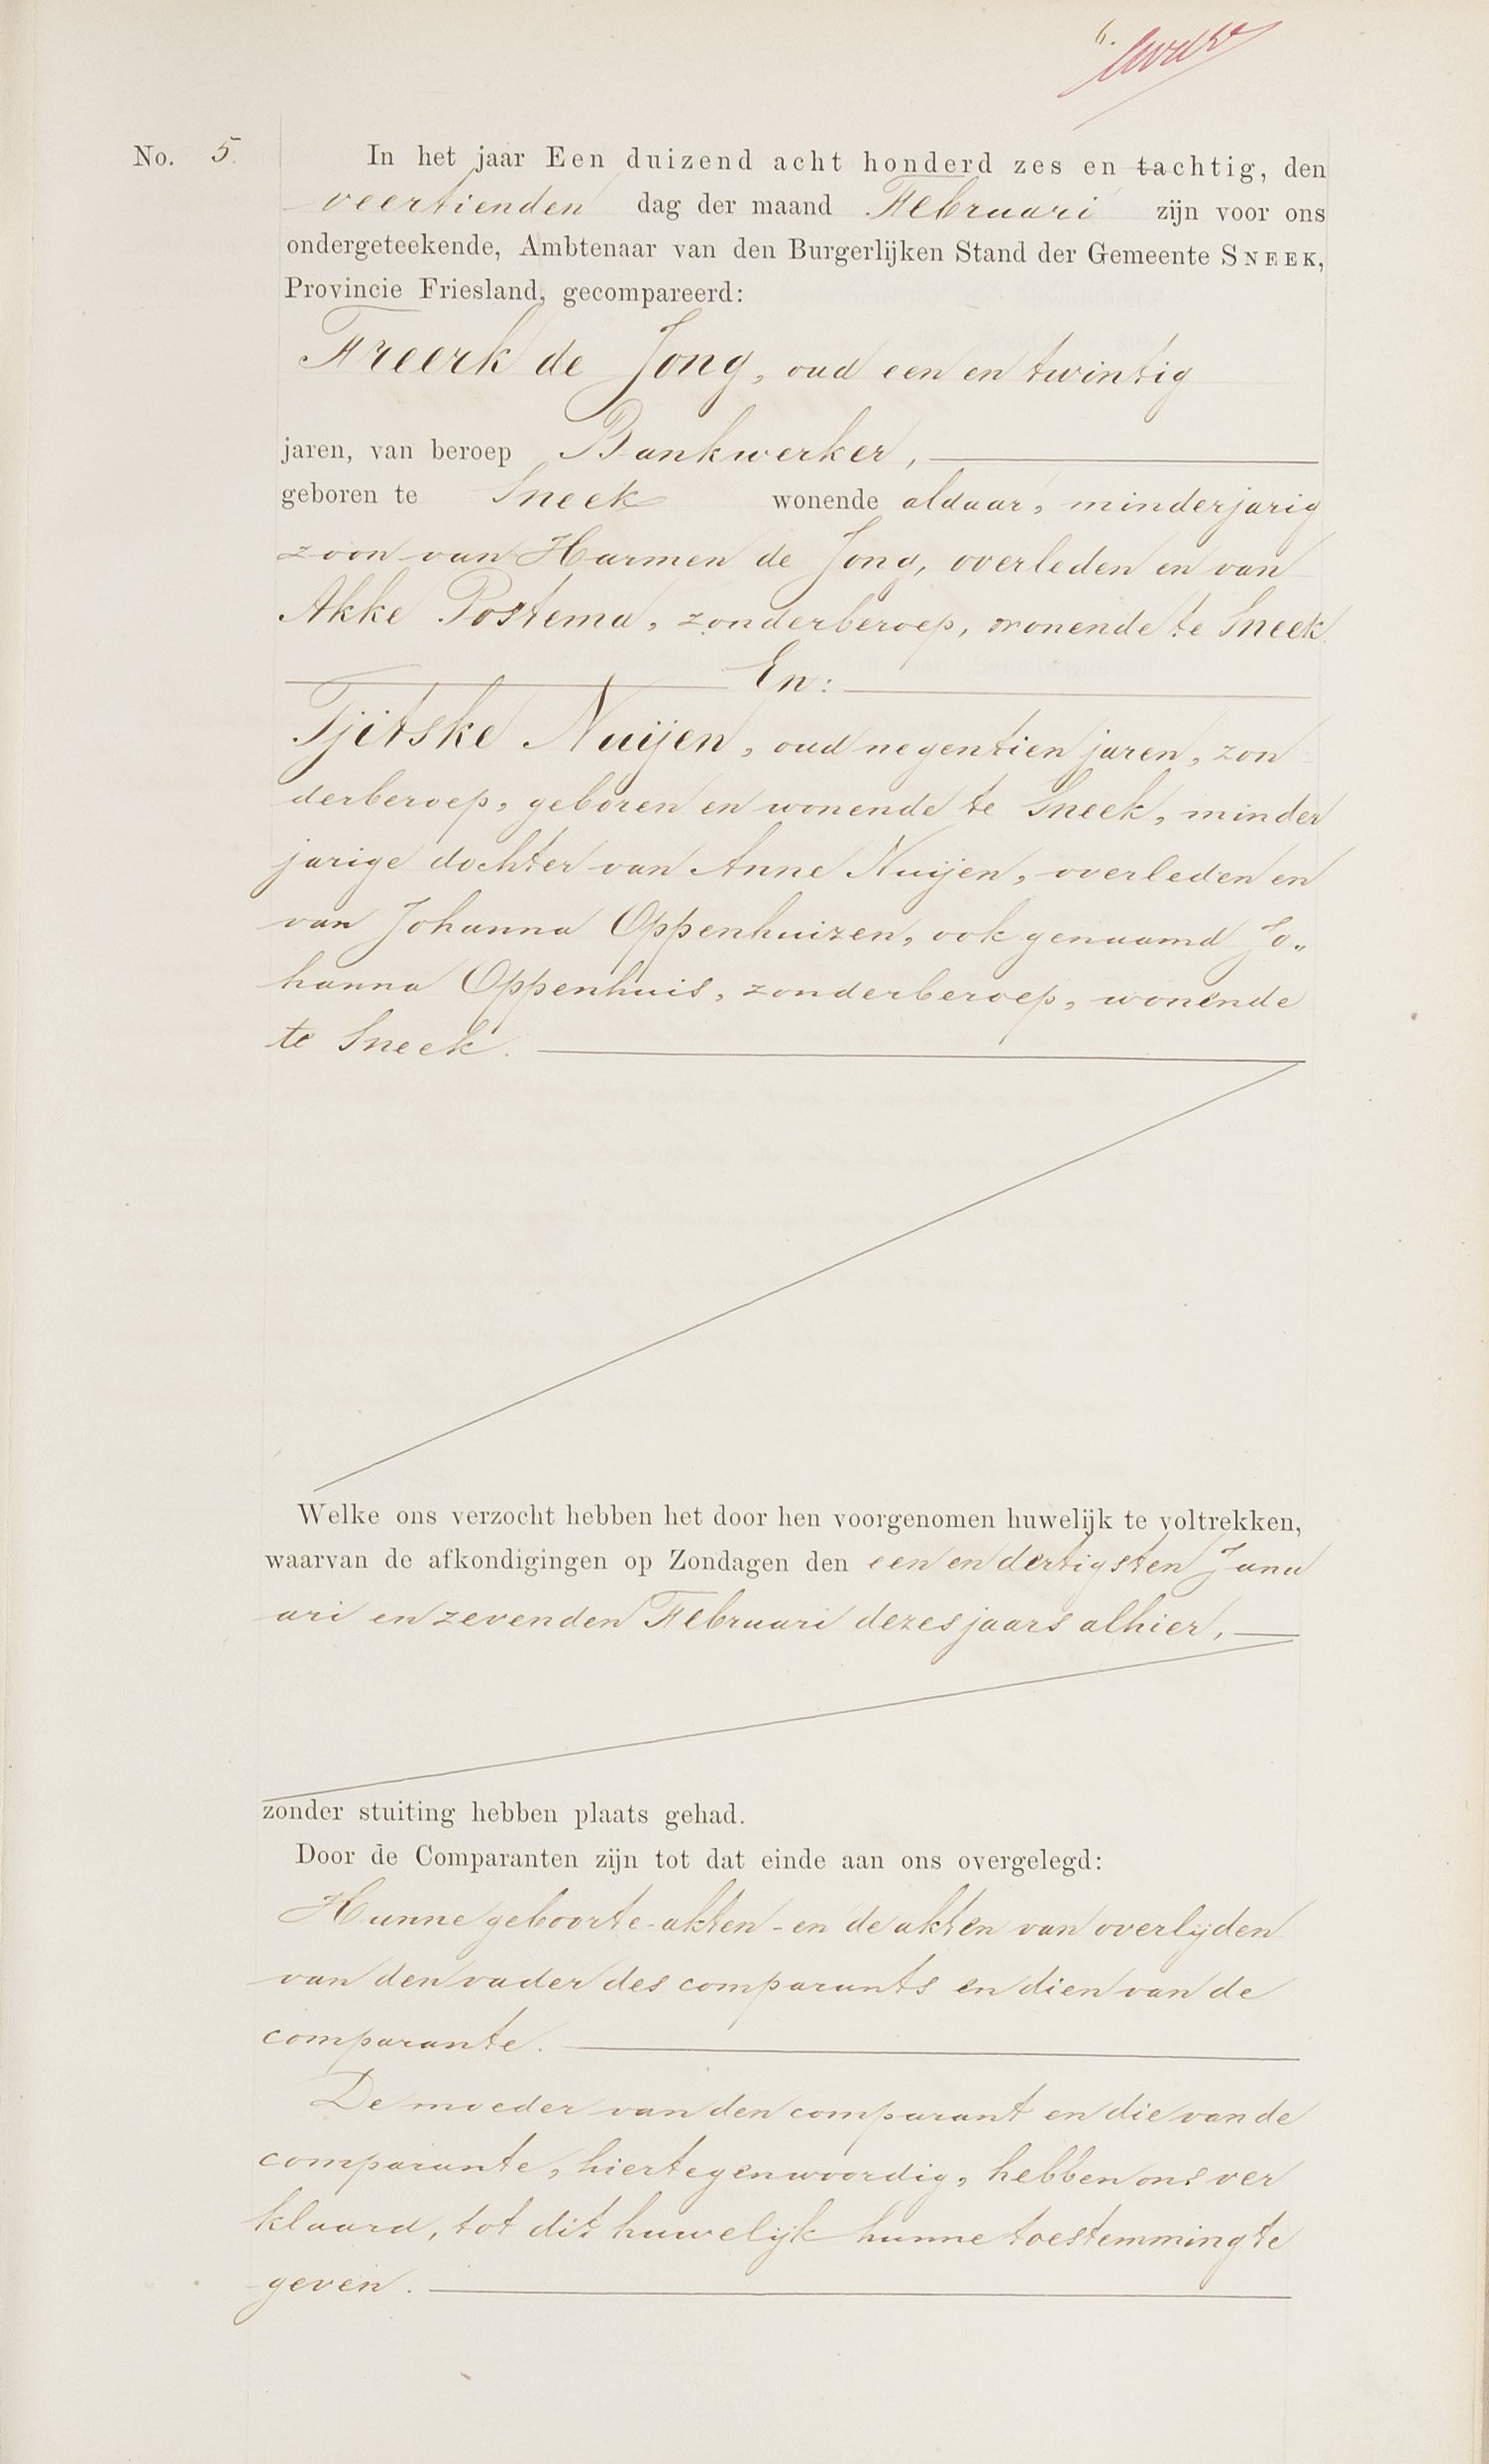 6.
No. 5.
In het jaar Een duizend acht honderd zes en tachtig, den
veertienden dag der maand Februari zijn voor ons
ondergeteekende, Ambtenaar van den Burgerlijken Stand der Gemeente SNEEK,
Provincie Friesland, gecompareerd:
Freerk de Jong, oud een en twintig
jaren, van beroep Bankwerker,
geboren te Sneek wonende aldaar, minderjarig
zoon van Harmen de Jong, overleden en van
Akke Postema, zonderberoep, wonende te Sneek
En:
Tjitske Nuijen, oud negentien jaren, zon
derberoep, geboren en wonende te Sneek, minder
jarige dochter van Anne Nuijen, overleden en
van Johanna Oppenhuizen, ook genaamd Jo„
hanna Oppenhuis, zonderberoep, wonende
te Sneek.
Welke ons verzocht hebben het door hen voorgenomen huwelijk te voltrekken,
waarvan de afkondigingen op Zondagen den een en dertigsten Janu
ari en zevenden Februari dezes jaars alhier,
zonder stuiting hebben plaats gehad.
Door de Comparanten zijn tot dat einde aan ons overgelegd:
Hunne geboorte-akten - en de akten van overlijden
van den vader des comparants en dien van de
comparante.
De moeder van den comparant en die van de
comparante, hiertegenwoordig, hebben ons ver
klaard, tot dit huwelijk hunne toestemming te
geven.